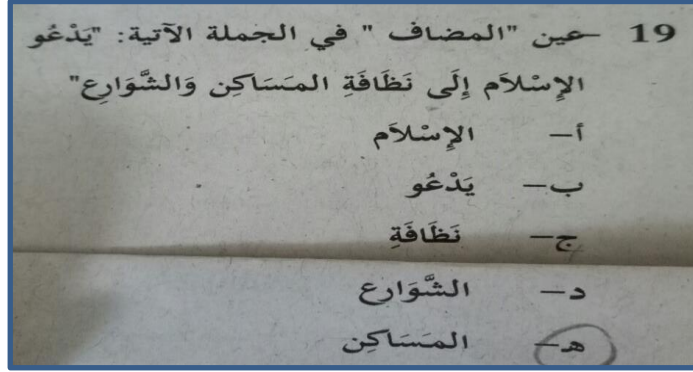 19 عين "المضاف " في الجملة الآتية: "يَدْعُو
الإِسْلاَم إِلَى نَظَافَةِ المَسَاكِن وَالشَّوَارِع"
أ– الإِسْلاَم
ب– يَدْعُو
ج– نَظَافَةِ
د– الشَّوَارِع
هـ– المَسَاكِن